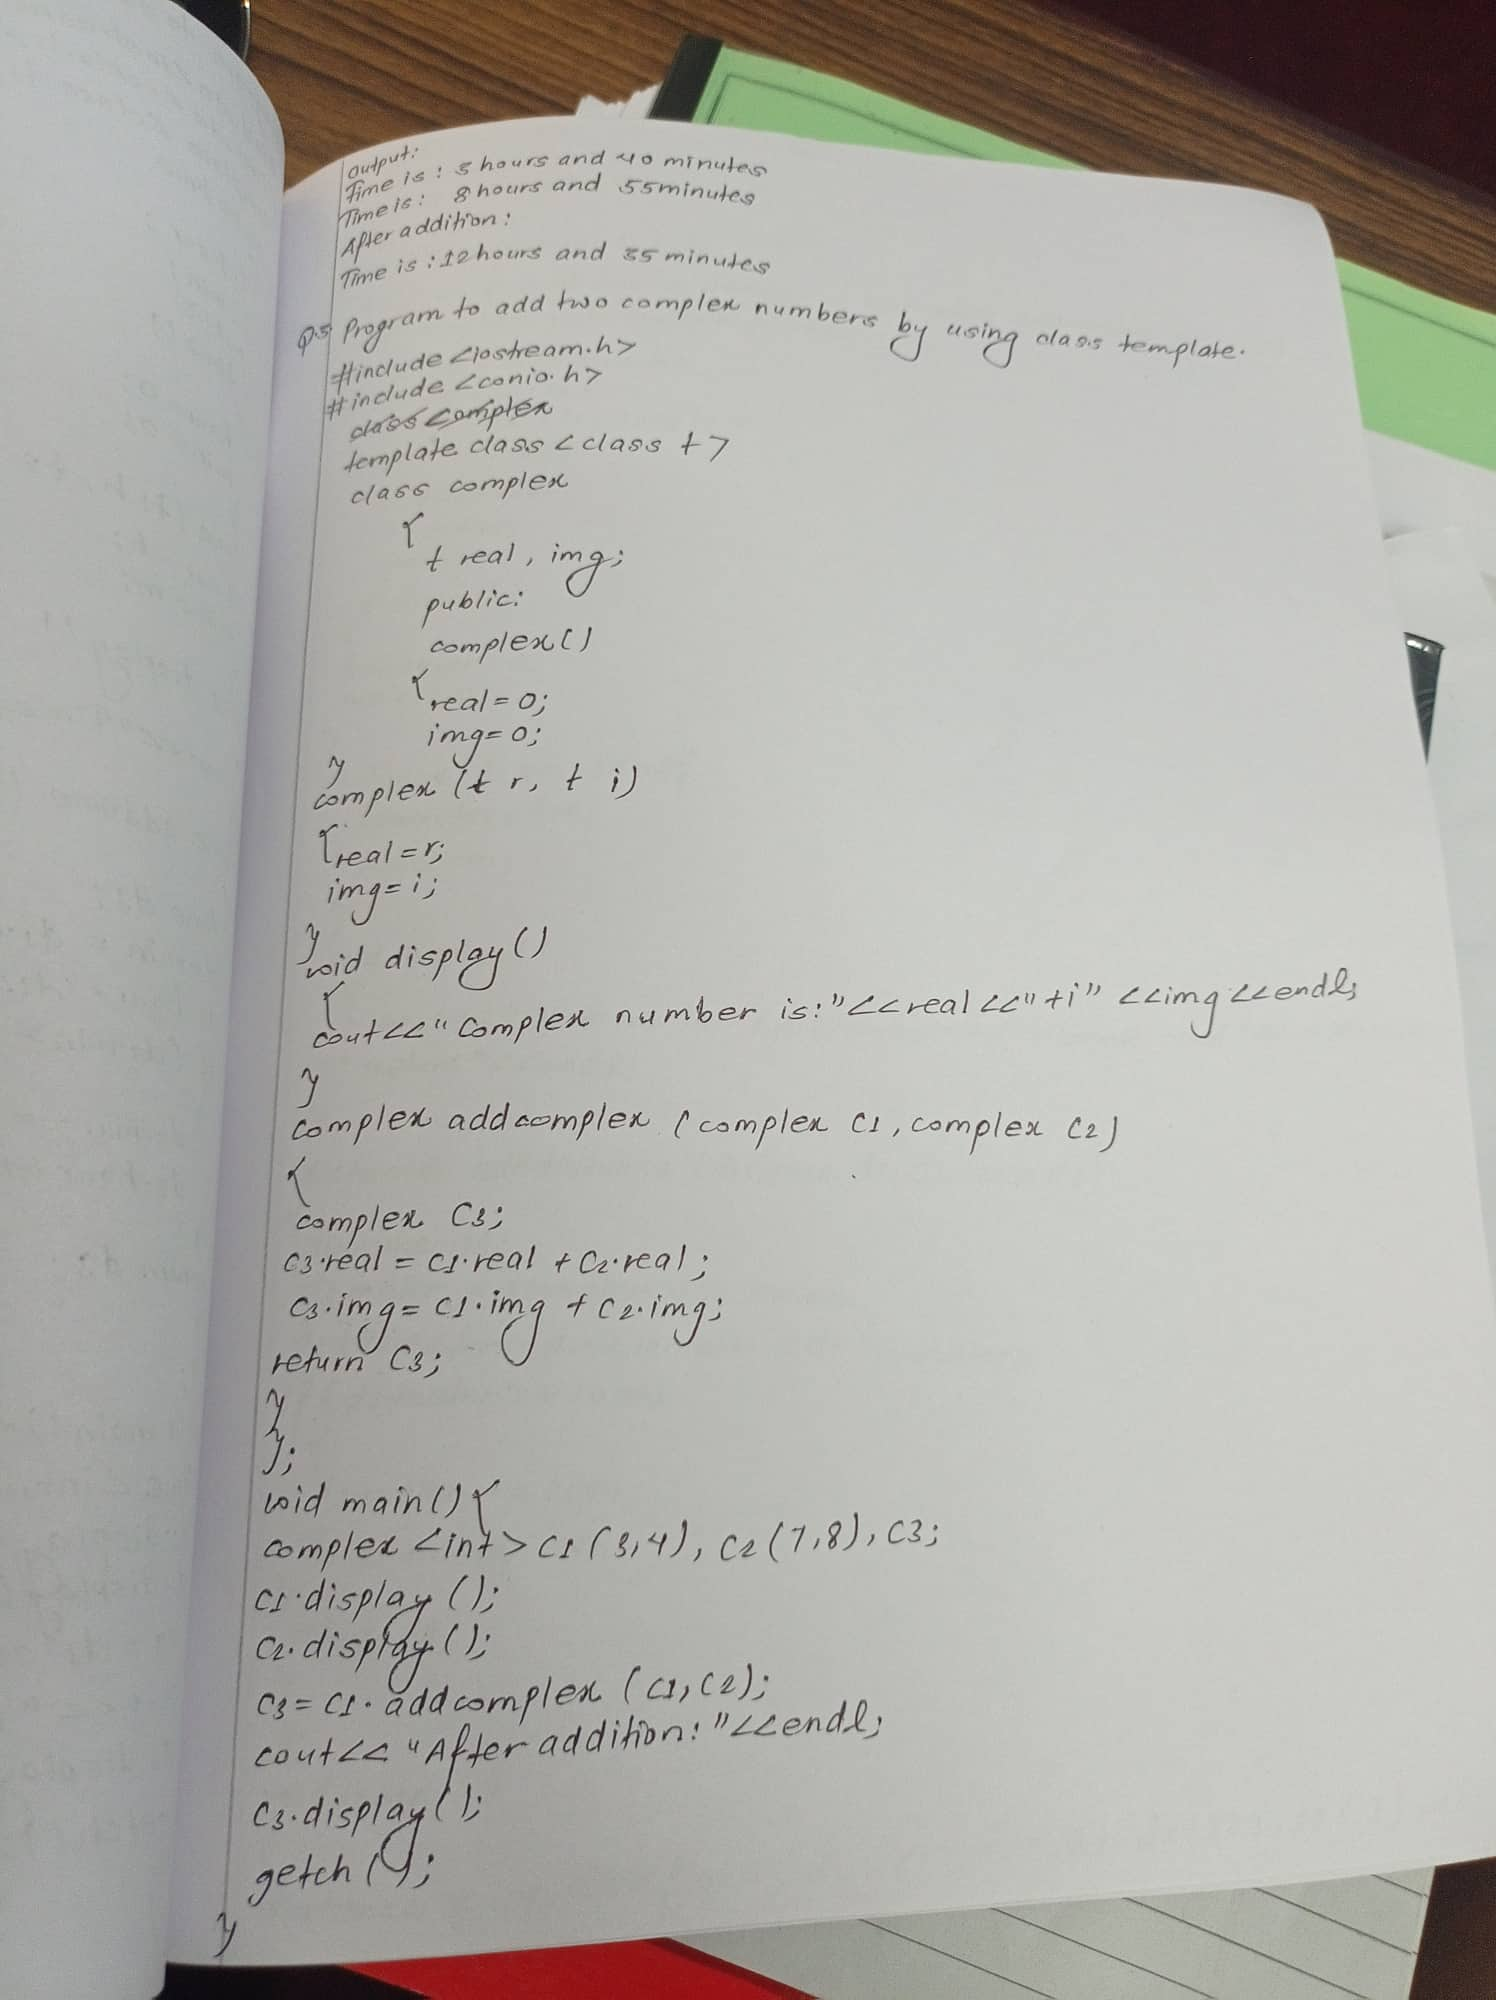 Output:
Time is : 5 hours and 40 minutes
Time is : 8 hours and 55 minutes
After addition :
Time is : 12 hours and 35 minutes
Q.5 Program to add two complex numbers by using class template.
#include <iostream.h>
#include <conio.h>
class complex
template class <class t>
class complex
{
t real, img;
public:
complex()
{ real = 0;
img = 0;
}
complex (t r, t i)
{ real = r;
img = i;
}
void display()
{
cout<<"Complex number is:"<<real<<"+i"<<img<<endl;
}
complex addcomplex (complex C1, complex C2)
{
complex C3;
C3.real = C1.real + C2.real;
C3.img = C1.img + C2.img;
return C3;
}
};
void main() {
complex <int> C1 (3,4), C2 (7,8), C3;
C1.display ();
C2.display ();
C3 = C1.addcomplex (C1, C2);
cout<< "After addition:"<<endl;
C3.display();
getch ();
}